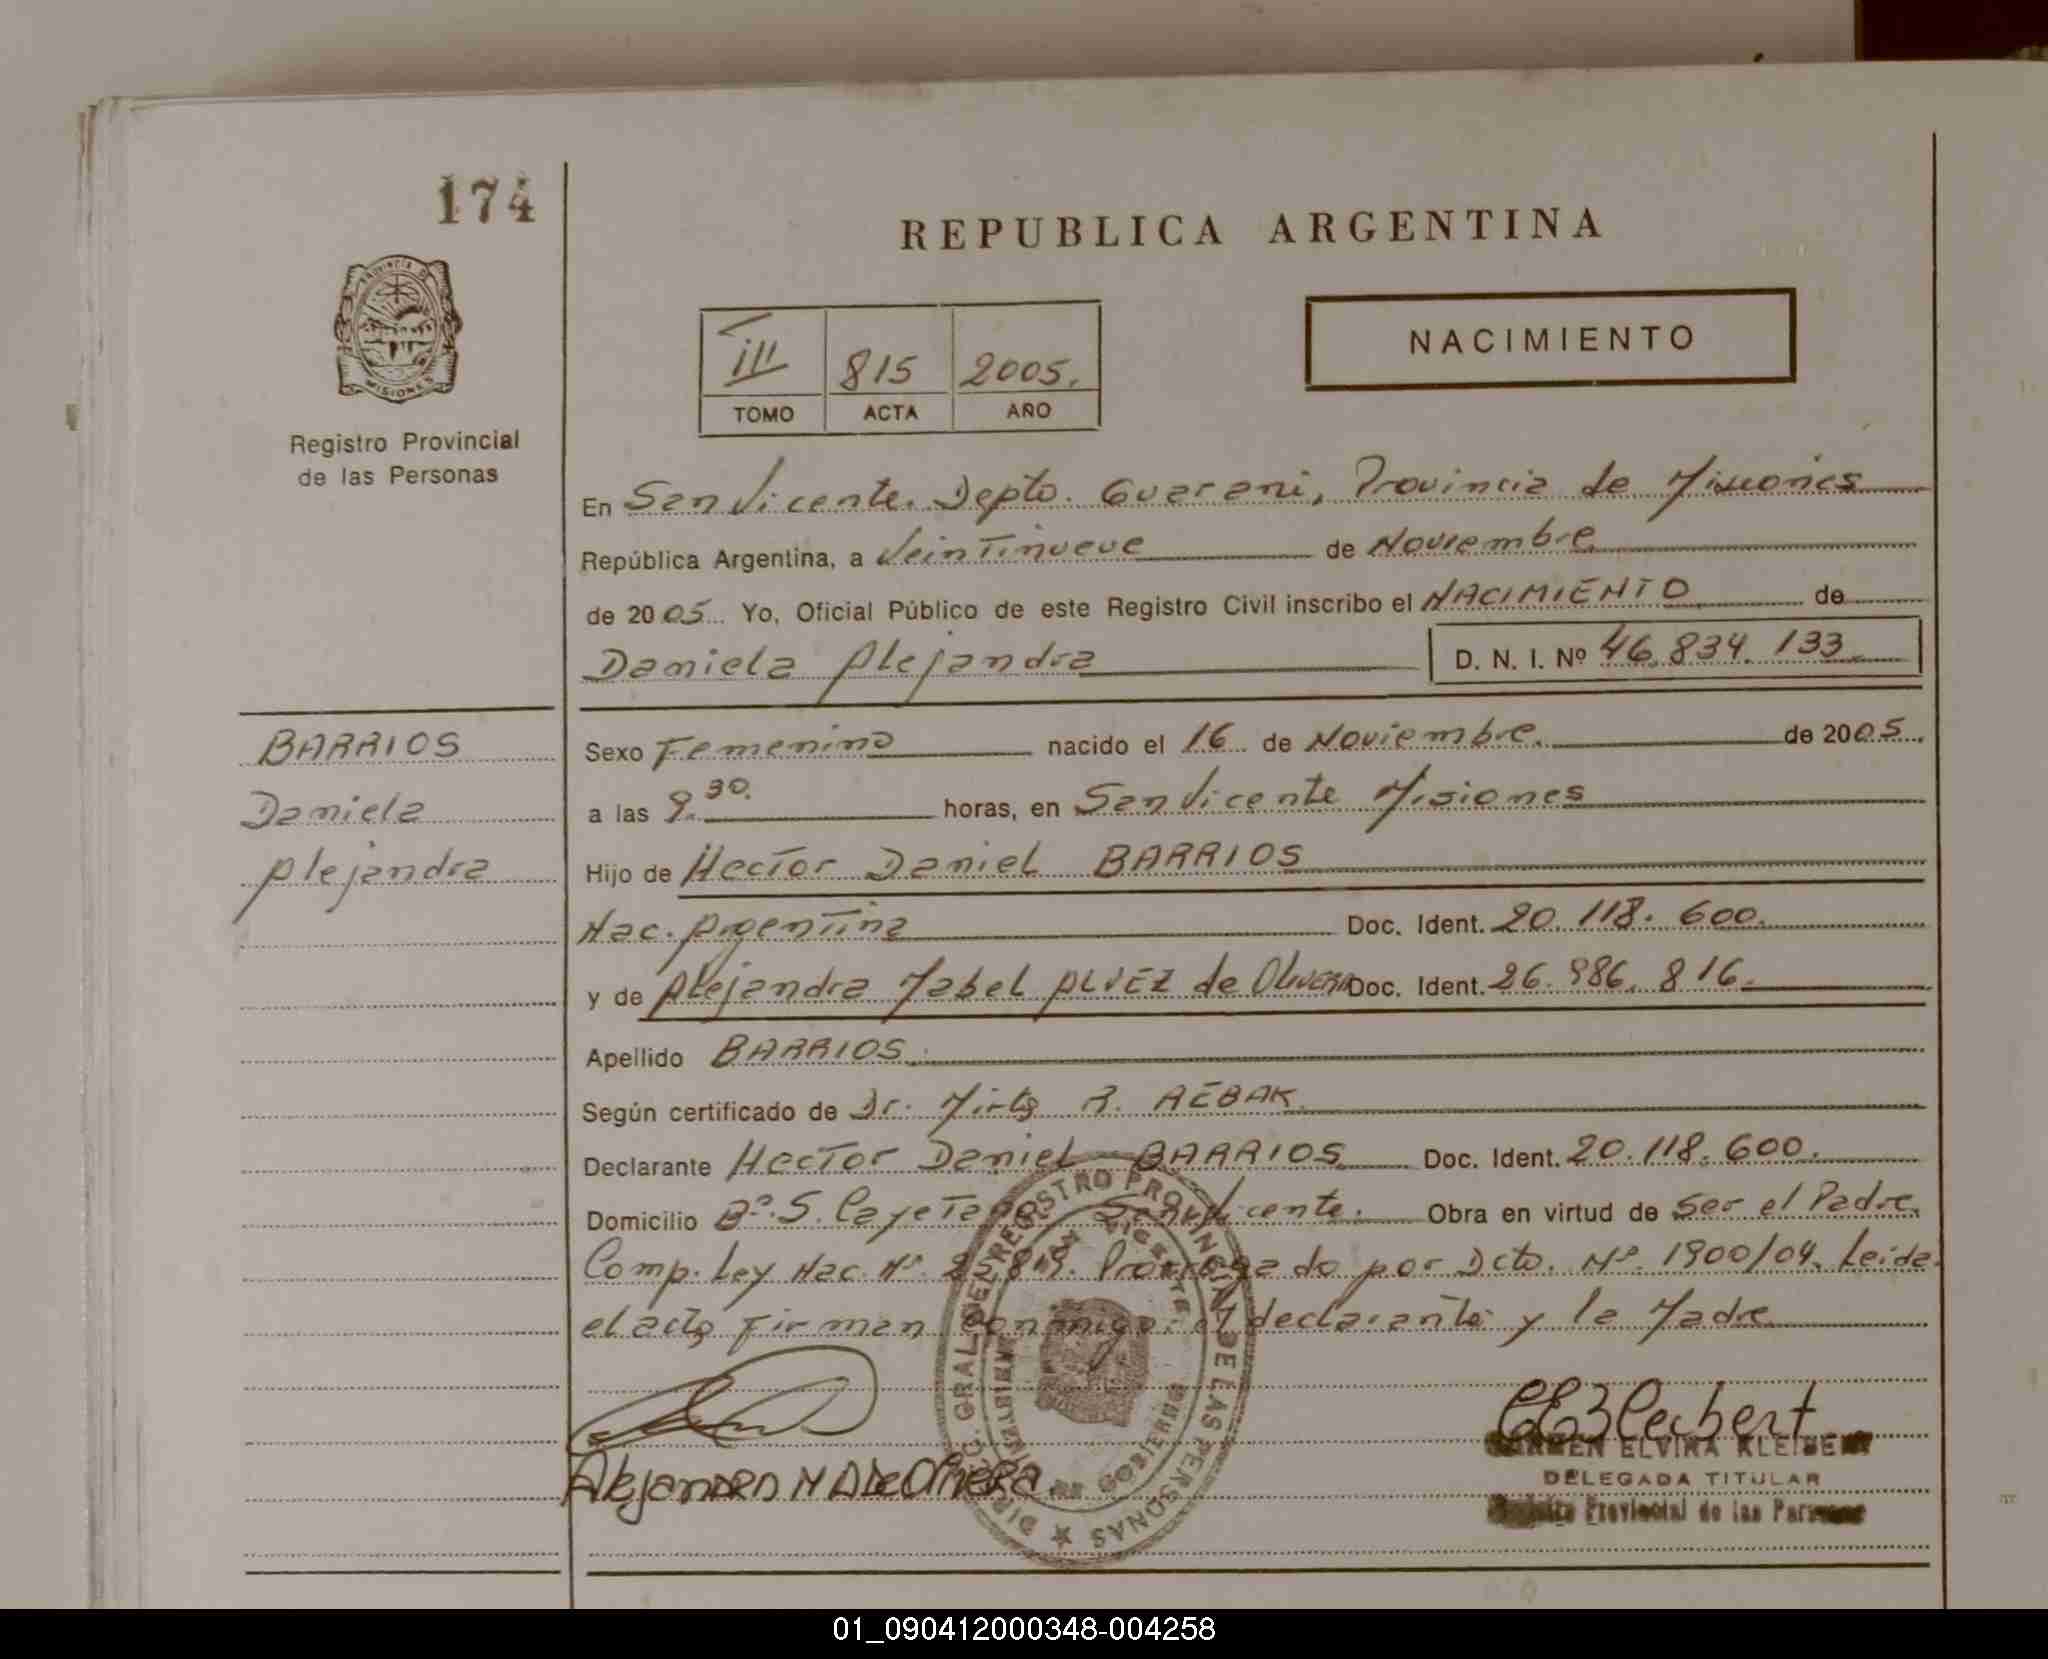 174
REPUBLICA ARGENTINA
PROVINCIA DE MISIONES
Registro Provincial
de las Personas
III 815 2005.
TOMO ACTA AÑO
NACIMIENTO
En San Vicente. Depto. Guarani, Provincia de Misiones
República Argentina, a Veintinueve de Noviembre
de 2005 Yo, Oficial Público de este Registro Civil inscribo el NACIMIENTO de
Daniela Alejandra D. N. I. Nº 46.834.133
BARRIOS
Daniela
Alejandra
Sexo Femenino nacido el 16 de Noviembre. de 2005.
a las 9.30. horas, en San Vicente Misiones
Hijo de Hector Daniel BARRIOS
Nac. Argentina Doc. Ident. 20.118.600.
y de Alejandra Mabel ALVEZ de OLIVERA Doc. Ident. 26.986.816.
Apellido BARRIOS.
Según certificado de Dr. R.
Declarante Hector Daniel BARRIOS Doc. Ident. 20.118.600.
Domicilio Bº. S. Cayetano San Vicente. Obra en virtud de Ser el Padre.
Comp. Ley Nac. Nº. Prorrogado por Dcto. Nº. 1900/04. Leida
el acta Firman conmigo: el declarante y la Madre
DIREC. GRAL. DEL REGISTRO PROVINCIAL DE LAS PERSONAS
SAN VICENTE
CARMEN ELVIRA KLEIBERT
DELEGADA TITULAR
Registro Provincial de las Personas
01_090412000348-004258